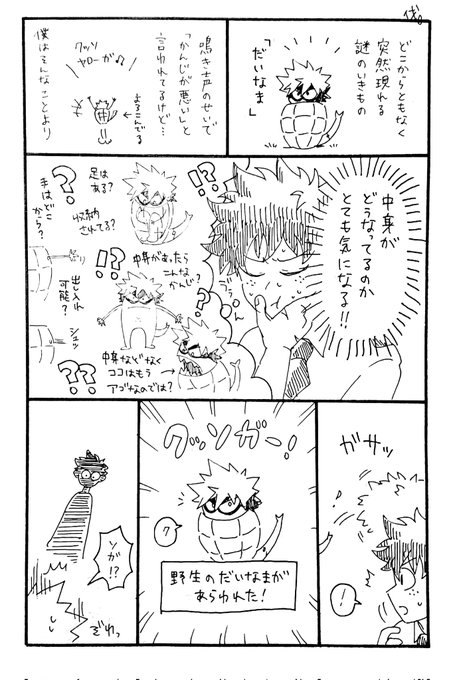 どこからともなく
突然現れる
謎のいきもの
「だいなま」
鳴き声のせいで
「かんじが悪い」と
言われてるけど…
僕はそんなことより
クッソ
ヤローが♪
←よろこんでる
中身が
どうなってるのか
とても気になる!!
?
!?
足は
ある?
収納
されてる?
?
手はどこ
から?
!?
中身があったら
こんな
かんじ?
!?
出し入れ
可能?
シュッ
中身などなく
ココはもう→
アゴなのでは?
??
ガサッ
!
クッソガー!
?
野生のだいなまが
あらわれた!
ソガ!?
ぞわっ